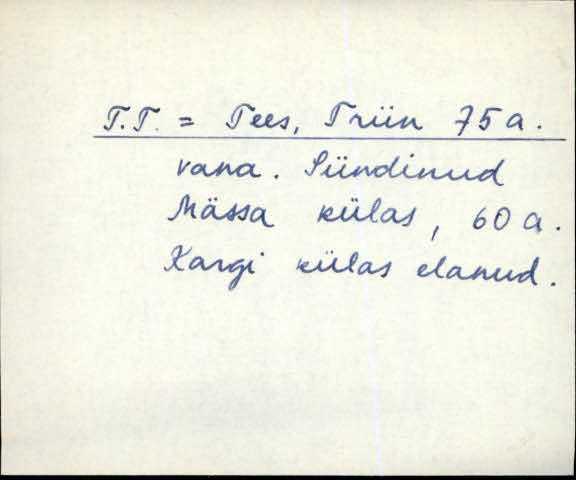 T.T. = Tees, Triin 75 a.
vana. Sündinud
Mässa külas, 60 a.
Kargi külas elanud.